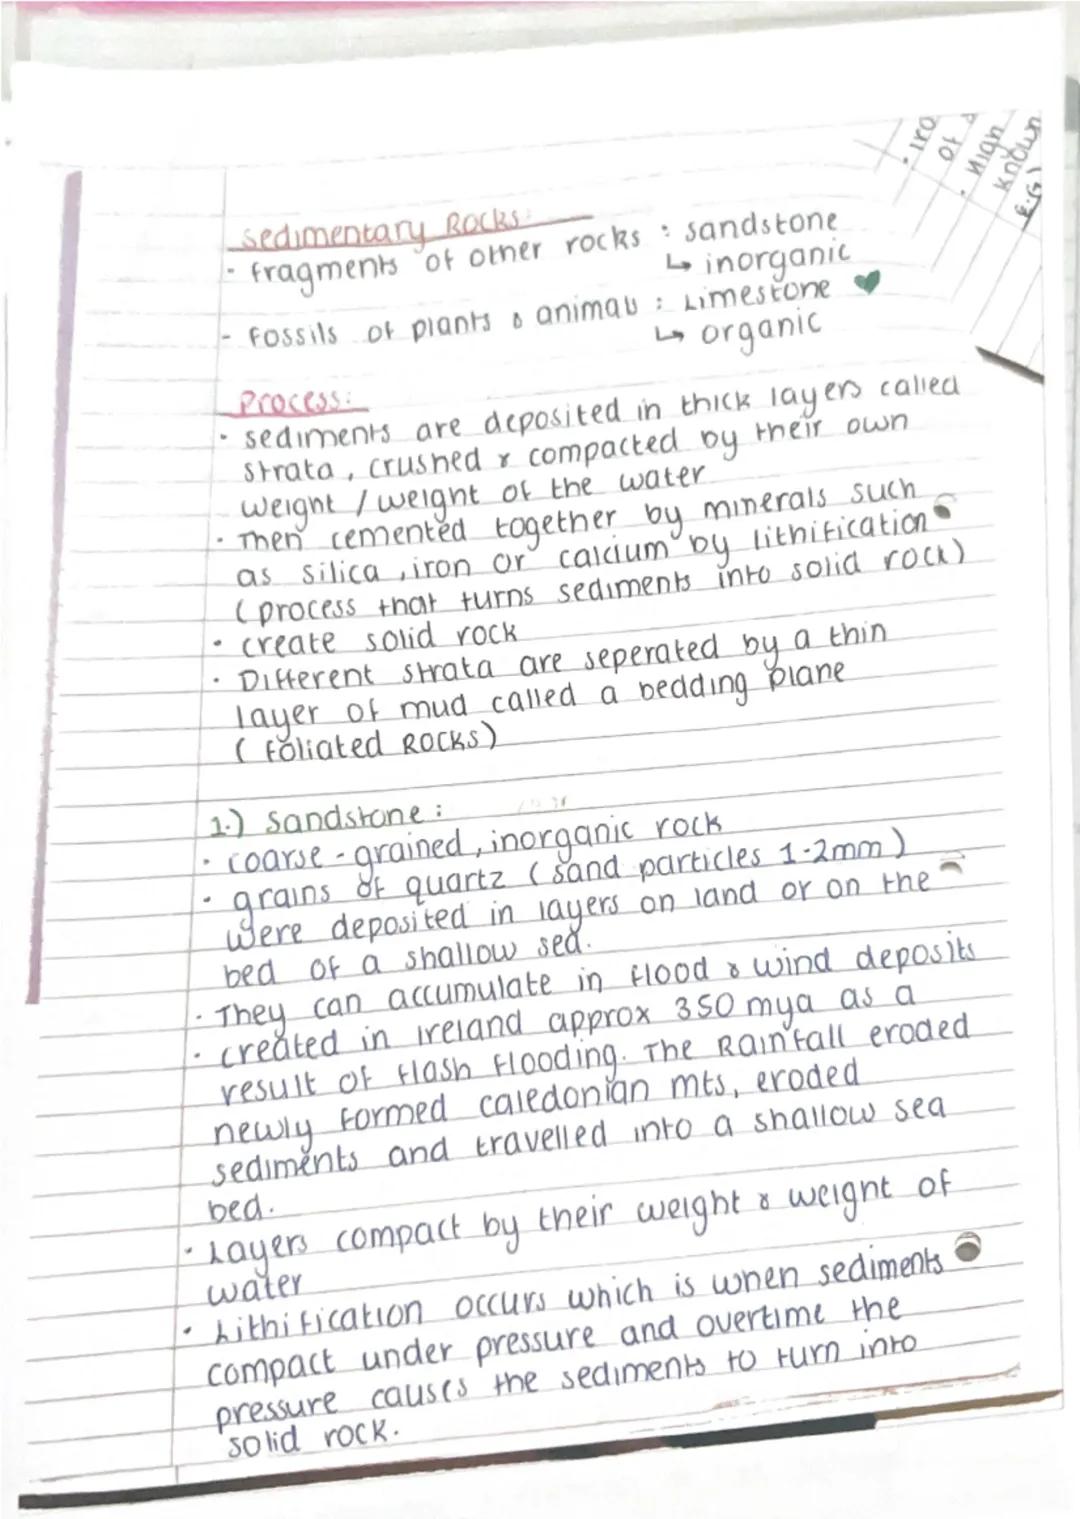 Sedimentary Rocks:
- fragments of other rocks : sandstone
↳ inorganic
- Fossils of plants & animals : Limestone
↳ organic
Process:
• sediments are deposited in thick layers called
strata, crushed & compacted by their own
weight / weight of the water
• Then cemented together by minerals such
as silica, iron or calcium by lithification
(process that turns sediments into solid rock)
• create solid rock
• Different strata are seperated by a thin
layer of mud called a bedding plane
(foliated Rocks)
1.) Sandstone :
• coarse-grained, inorganic rock
• grains of quartz (sand particles 1-2mm)
were deposited in layers on land or on the
bed of a shallow sea.
• They can accumulate in flood & wind deposits
• created in Ireland approx 350 mya as a
result of flash flooding. The Rainfall eroded
newly formed caledonian mts, eroded
sediments and travelled into a shallow sea
bed.
• Layers compact by their weight & weight of
water
• Lithification occurs which is when sediments
compact under pressure and overtime the
pressure causes the sediments to turn into
solid rock.
• Iro
of
• High
known
E.G)